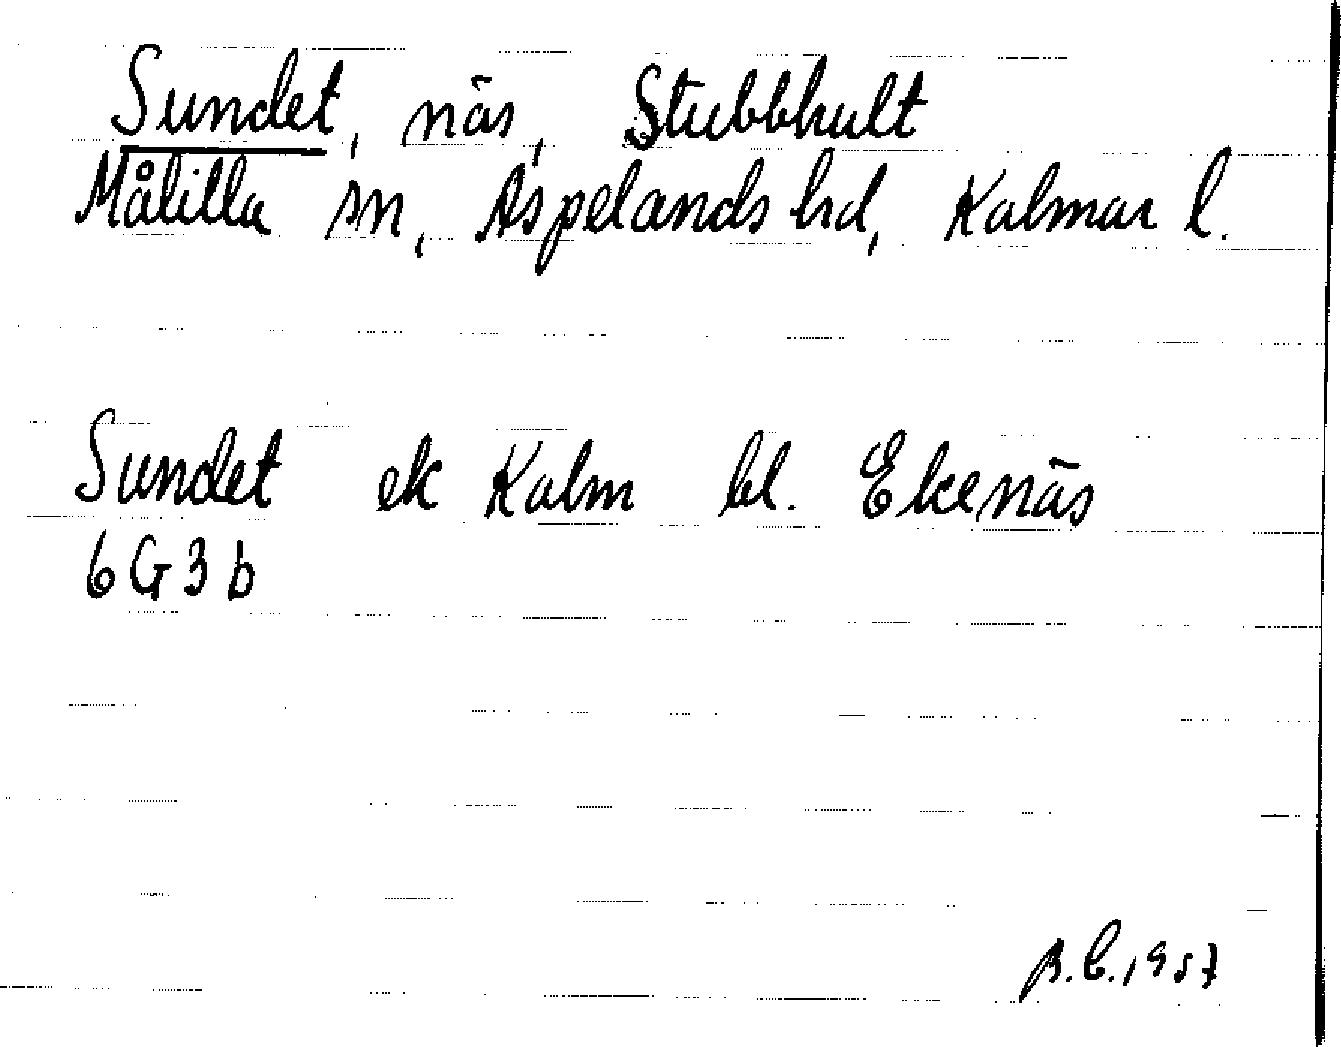 Sundet, näs, Stubbhult
Målilla sn, Aspelands hd, Kalmar l.
Sundet ek Kalm bl. Ekenäs
6G3b
B.C. 1957